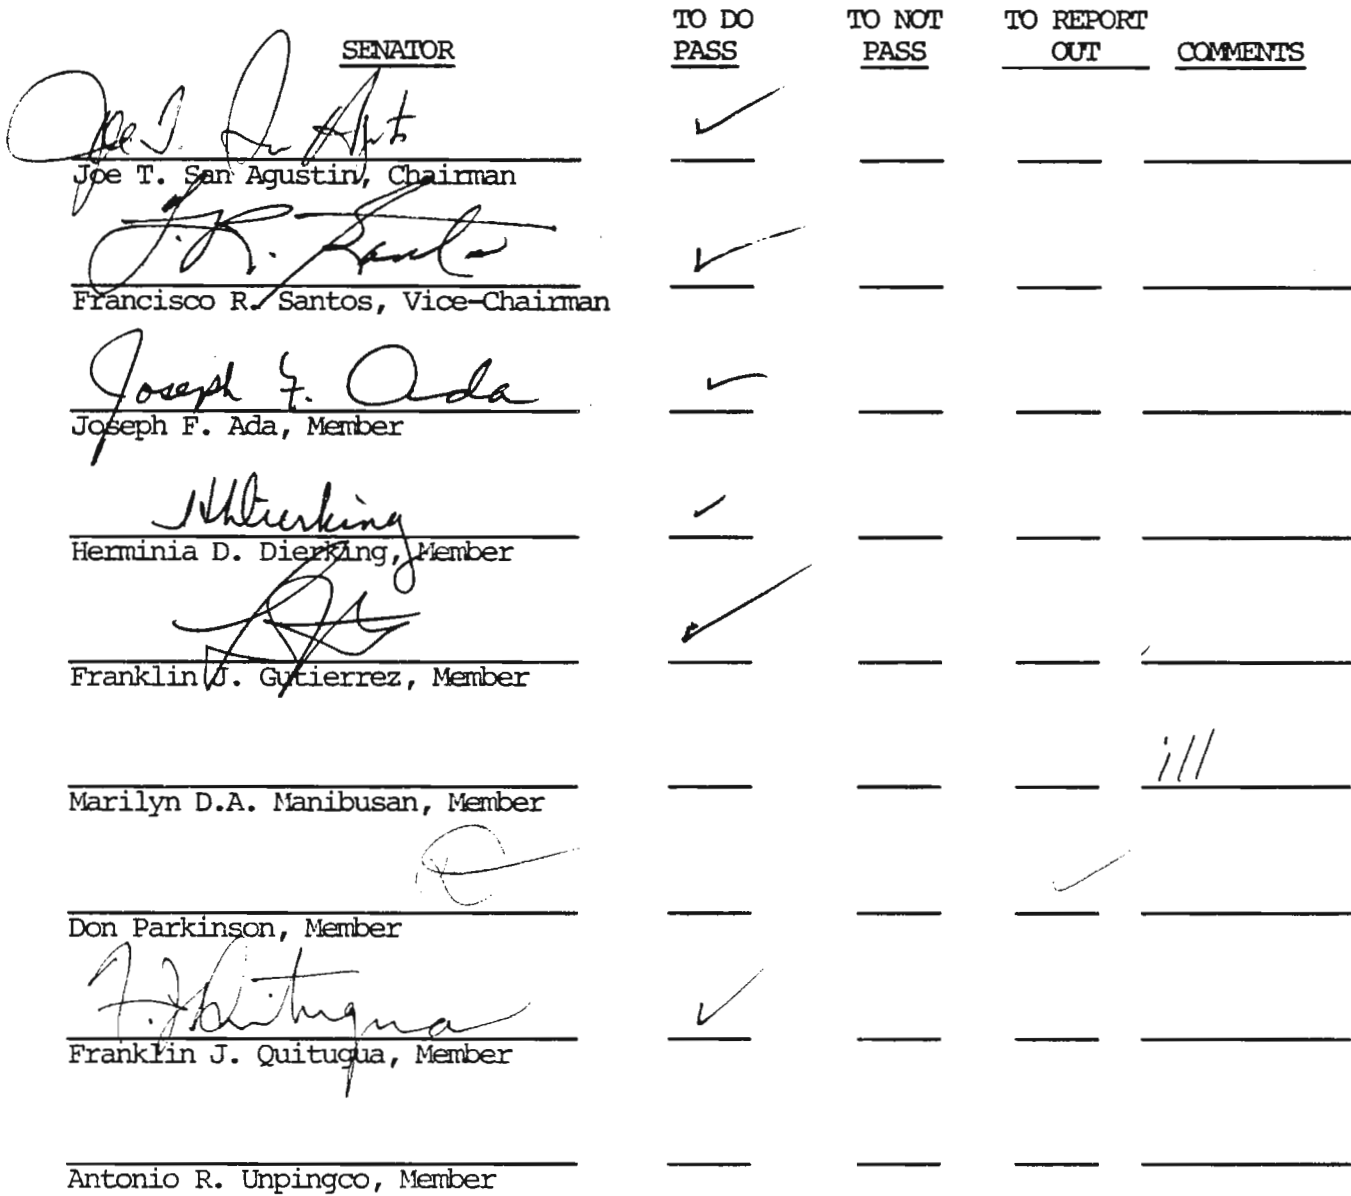 TO DO TO NOT TO REPORT
SENATOR PASS PASS OUT COMMENTS
Joe T. San Agustin ✓
Joe T. San Agustin, Chairman
F.R. Santos ✓
Francisco R. Santos, Vice-Chairman
Joseph F. Ada ✓
Joseph F. Ada, Member
HDDierking ✓
Herminia D. Dierking, Member
✓
Franklin J. Gutierrez, Member
ill
Marilyn D.A. Manibusan, Member
✓
Don Parkinson, Member
F.J. Quitugua ✓
Franklin J. Quitugua, Member
Antonio R. Unpingco, Member